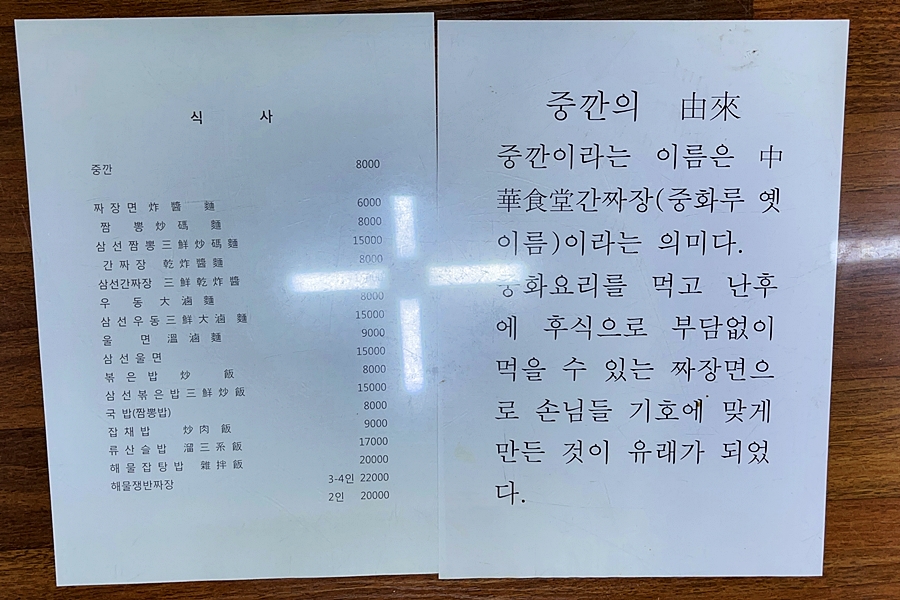 식 사
중깐 8000
짜장면 炸醬麵 6000
짬뽕 炒碼麵 8000
삼선짬뽕 三鮮炒碼麵 15000
간짜장 乾炸醬麵 8000
삼선간짜장 三鮮乾炸醬
우동 大滷麵 8000
삼선우동 三鮮大滷麵 15000
울면 溫滷麵 9000
삼선울면 15000
볶은밥 炒飯 8000
삼선볶은밥 三鮮炒飯 15000
국밥(짬뽕밥) 8000
잡채밥 炒肉飯 9000
류산슬밥 溜三系飯 17000
해물잡탕밥 雜拌飯 20000
해물쟁반짜장 3-4인 22000
2인 20000
중깐의 由來
중깐이라는 이름은 中
華食堂간짜장(중화루 옛
이름)이라는 의미다.
중화요리를 먹고 난후
에 후식으로 부담없이
먹을 수 있는 짜장면으
로 손님들 기호에 맞게
만든 것이 유래가 되었
다.